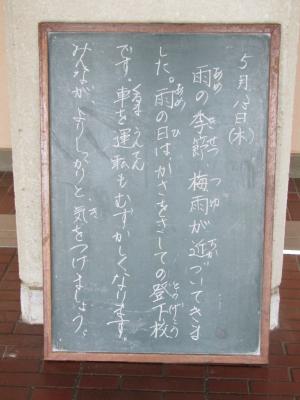 5月13日(木)
雨の季節梅雨が近づいてきま
した。雨の日は、かさをさしての登下校
です。車を運転もむずかしくなります。
みんなが、よりしっかりと、気をつけましょう。